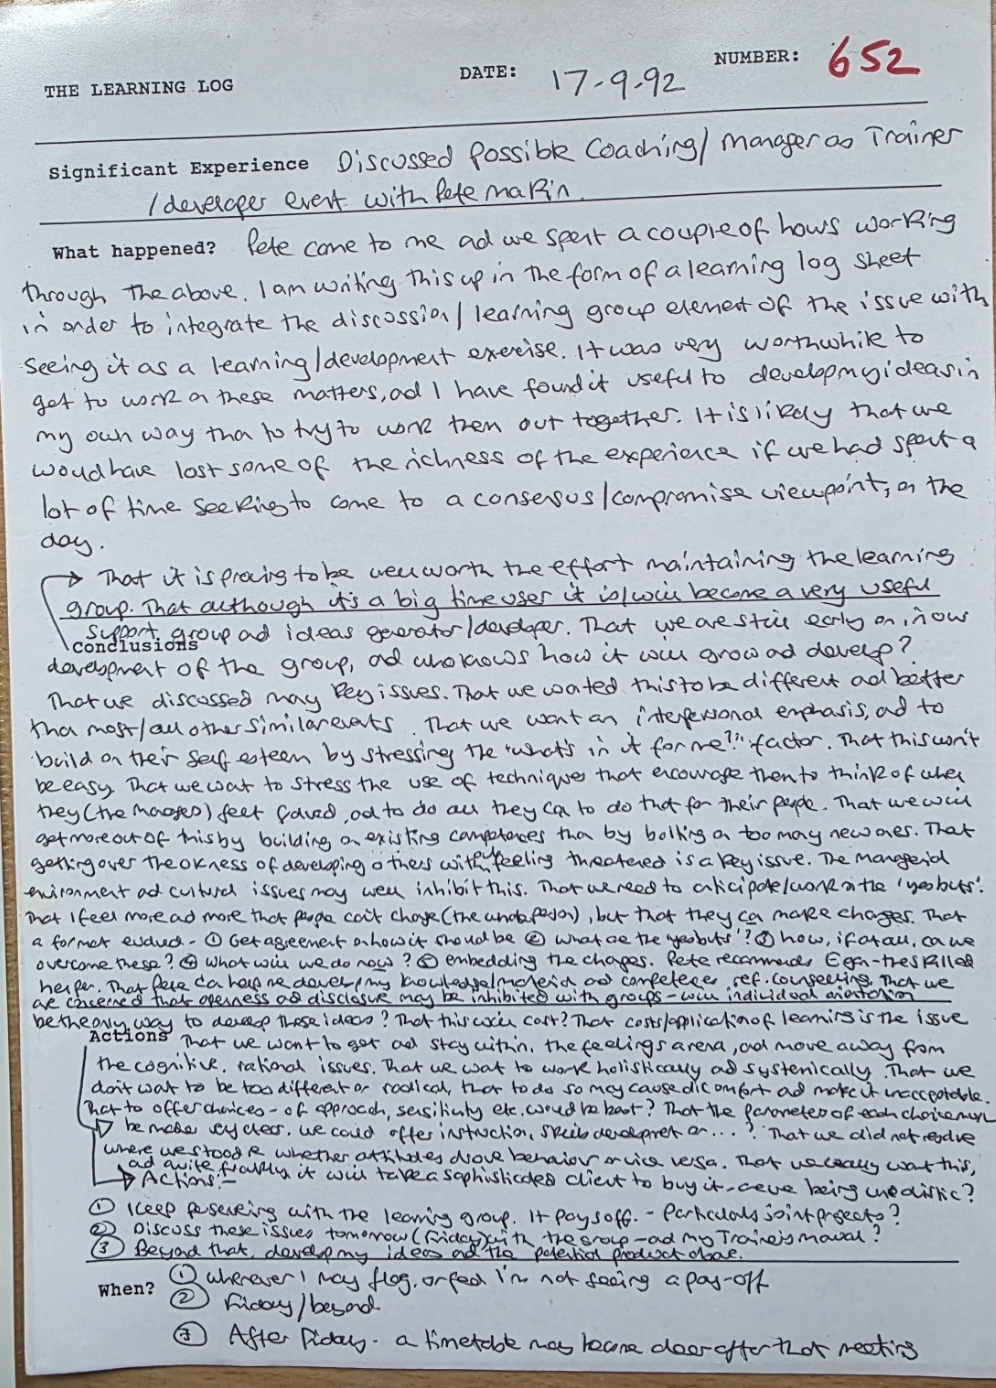 THE LEARNING LOG DATE: 17-9-92 NUMBER: 652
Significant Experience Discussed possible coaching/manager as Trainer
/developer event with Pete Makin.
What happened? Pete came to me ad we spent a couple of hours working
through the above. I am writing this up in the form of a learning log sheet
in order to integrate the discussion/learning group element of the issue with
seeing it as a learning/development exercise. It was very worthwhile to
get to work on these matters, ad I have found it useful to develop my ideas in
my own way than to try to work them out together. It is likely that we
would have lost some of the richness of the experience if we had spent a
lot of time seeking to come to a consensus/compromise viewpoint, on the
day.
→ That it is proving to be well worth the effort maintaining the learning
group. That although it's a big time user it is/will become a very useful
support group ad ideas generator/developer. That we are still early on in our
Conclusions
development of the group, ad who knows how it will grow ad develop?
That we discussed many key issues. That we wanted this to be different ad better
than most/all other similar events. That we want an interpersonal emphasis, ad to
build on their self esteem by stressing the "what's in it for me?" factor. That this won't
be easy. That we want to stress the use of techniques that encourage them to think of when
they (the managers) feel valued, ad to do all they can to do that for their people. That we will
get more out of this by building on existing competences than by bolting on too many new ones. That
getting over the okness of developing others without feeling threatened is a key issue. The managerial
environment ad cultural issues may well inhibit this. That we need to anticipate/work on the 'yes buts'.
That I feel more ad more that people can't change (the whole person), but that they can make changes. That
a format evolved - ① Get agreement on how it should be ② What are the 'yes buts'? ③ how, if at all, can we
overcome these? ④ What will we do now? ⑤ embedding the changes. Pete recommends Egan - the skilled
helper. That Pete can help me develop my knowledge/material ad competence ref. counselling. That we
are concerned that openness ad disclosure may be inhibited with groups - will individual orientation
be the only way to develop these ideas? That this will cost? That costs/application of learning is the issue
Actions That we want to get ad stay within, the feelings arena, ad move away from
the cognitive, rational issues. That we want to work holistically ad systemically. That we
don't want to be too different or radical, that to do so may cause discomfort ad make it unacceptable.
That to offer choices - of approach, sensitivity etc. would be best? That the parameters of each choice must
be made very clear. We could offer instruction, skills development or...? That we did not resolve
where we stood re whether attitudes drove behaviour or vice versa. That we really want this,
ad quite frankly it will take a sophisticated client to buy it - are we being unrealistic?
→ Actions:-
① Keep persevering with the learning group. It pays off. - Particularly joint projects?
② Discuss these issues tomorrow (Friday) with the group - ad my Trainer's manual?
③ Beyond that, develop my ideas ad the potential product alone.
When? ① Whenever I may flag, or feel I'm not seeing a pay-off
② Friday/beyond
③ After Friday - a timetable may become clear after that meeting